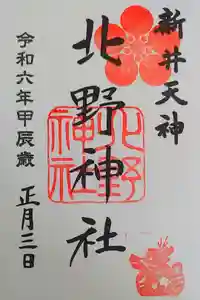 新井天神
北野神社
北野神社
令和六年甲辰歳
正月三日